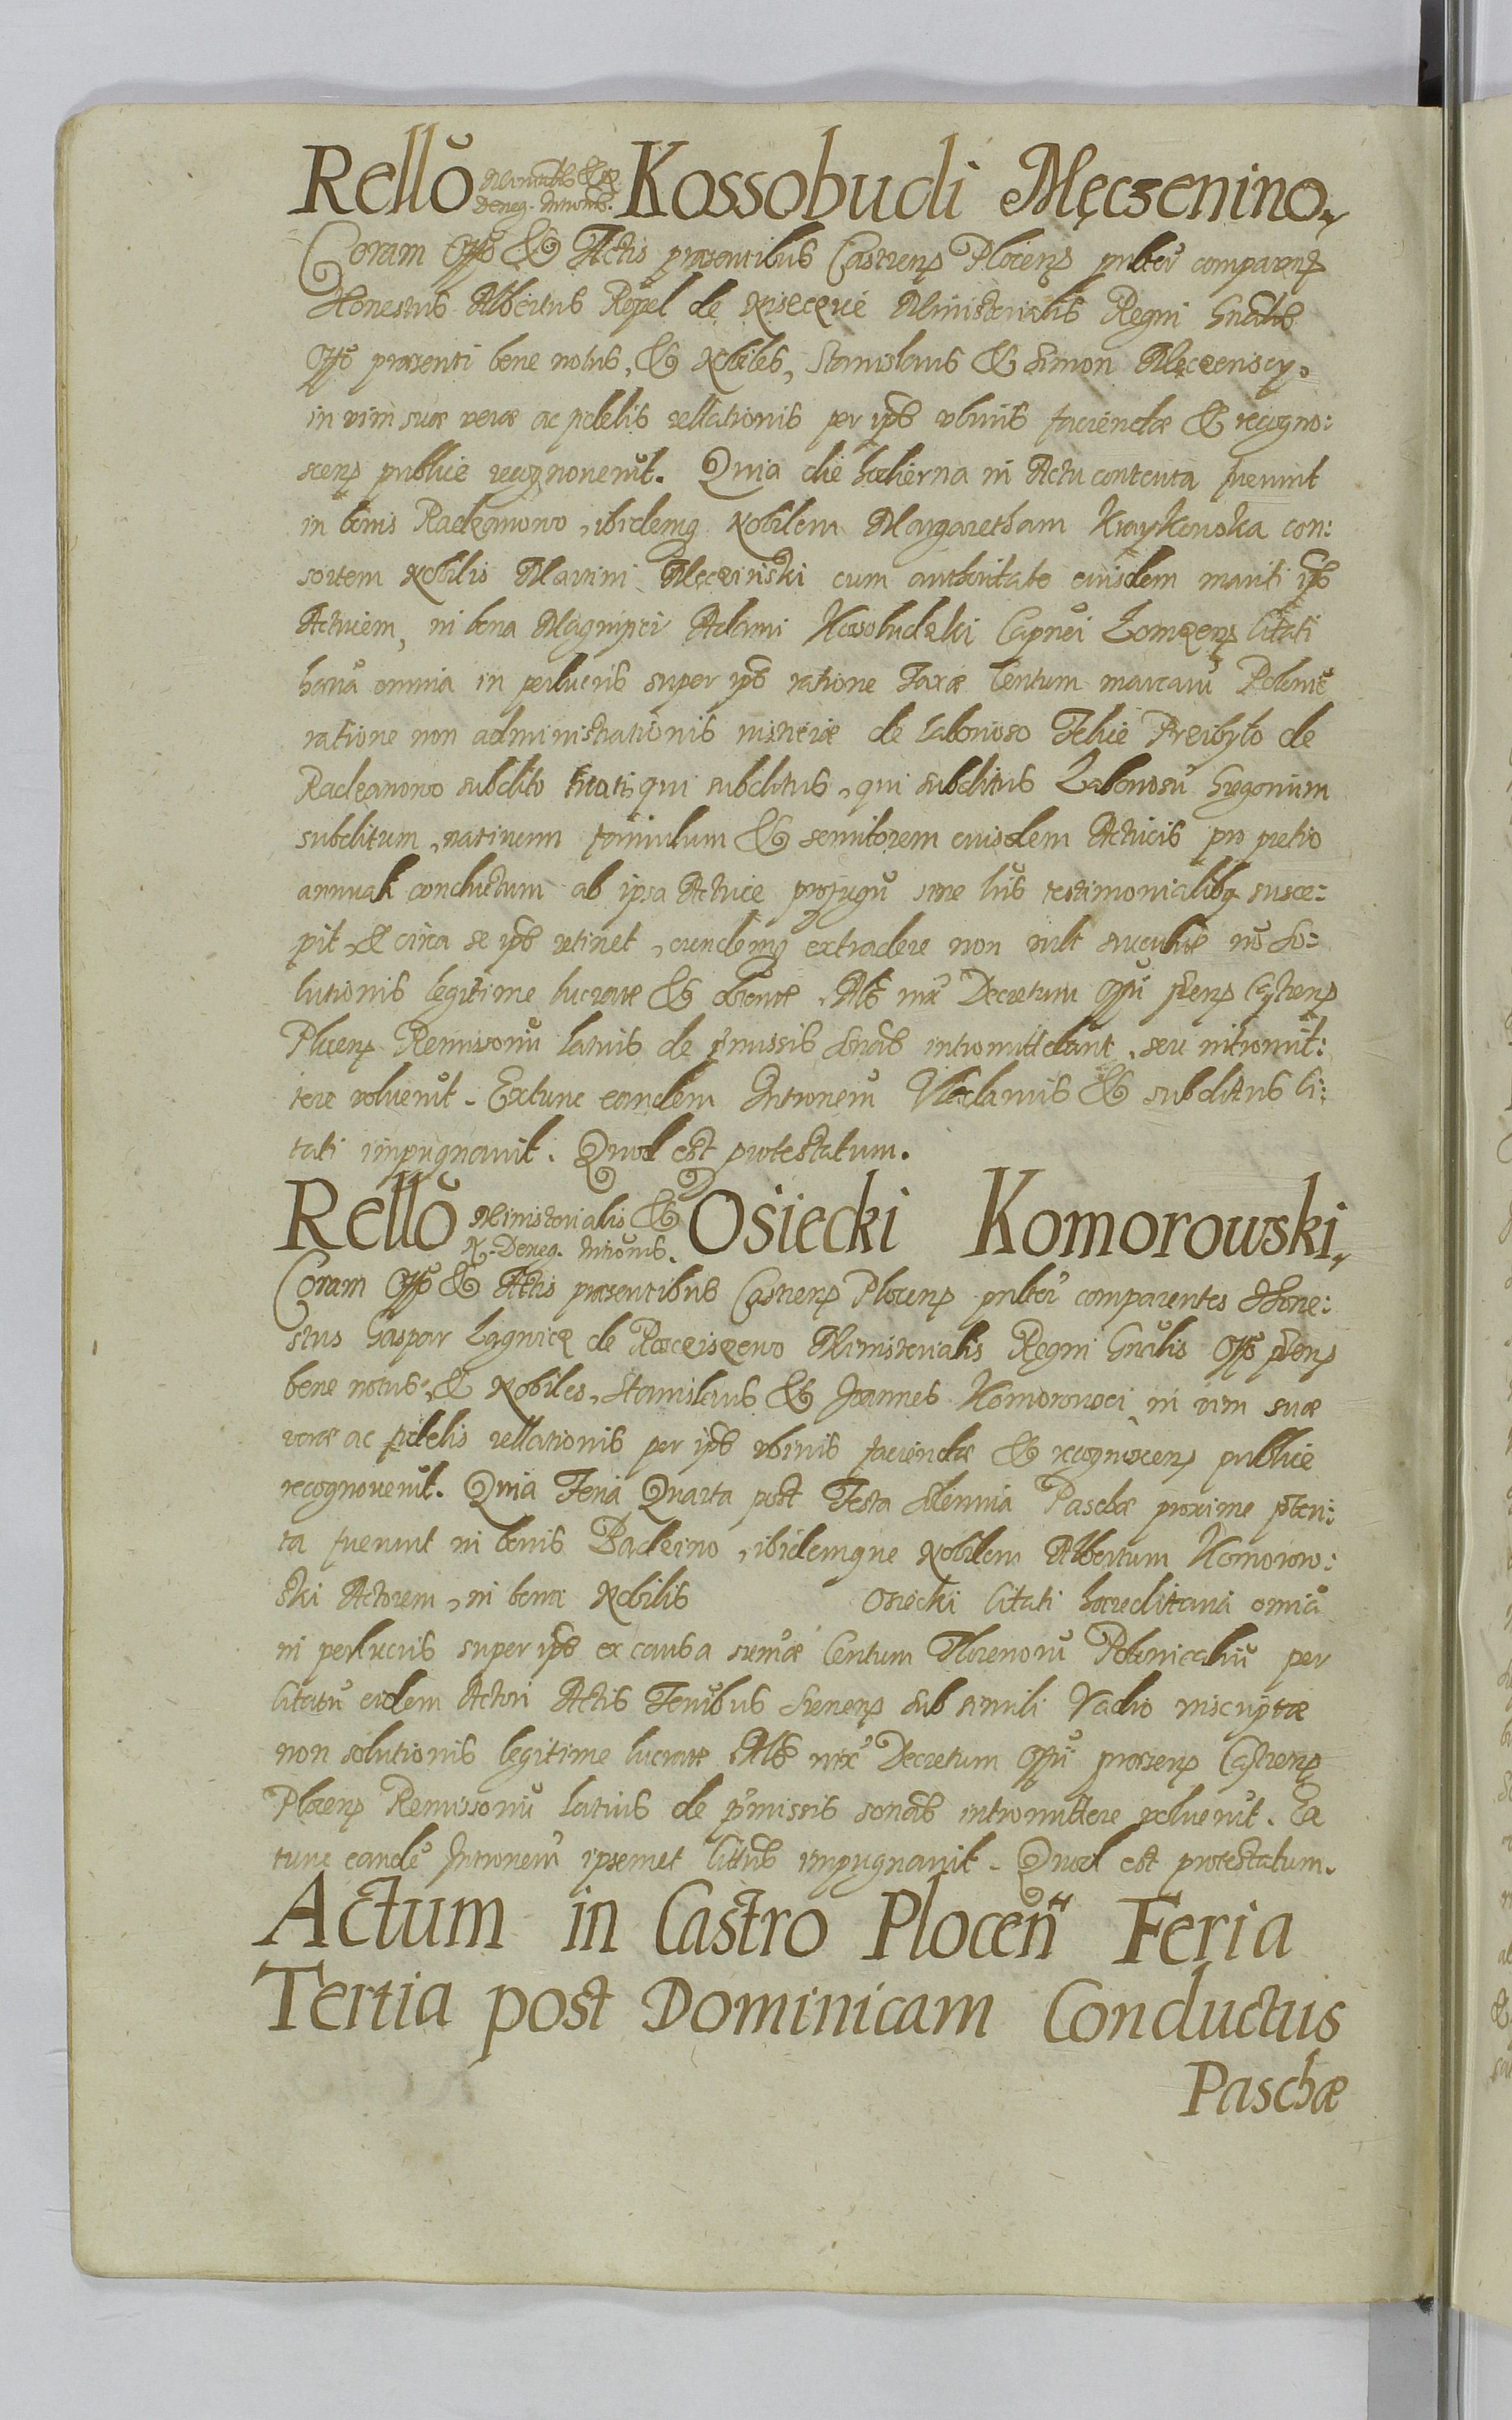 Rellõ Mẽrialis & Deneg. Intronis. Kossobudi Męczenino
Coram Offo & Actis præsentibus Castrens Plocens prsbter comparens
Honestus Albertus Repel de Ministerialis Regni Gnalis
Offo præsenti bene notus, & Nobiles, Stanislaus & Simon Męczenscy,
in vim suæ veræ ac fidelis rellationis per ipsos ubivis faciendæ & recogno:
scens publice recognoverūt. Quia die hodierna in Actu contenta fuerunt
in bonis Radzanowo, ibidemq Nobilem Margaretham con:
sortem Nobilis Martini Męcziński cum authoritate eiusdem mariti ips
Actricem, in bona Magnifici Adami Kossobudzki Capnei Łomzens Citati
hæria omnia in perlucris super ips ratione Taxæ Centum marcarū Polonic
ratione non administrationis iustitiæ de laborioso Felice de
Radzanowo subdito Citati qui subditus, qui subditus Laboriosū Gregorium
subditum, nativum famulum & servitorem eiusdem Actricis pro pretio
annuali conductum ab ipsa Actrice profugū sine lris testimonialibq susce:
pit & circa se ips retinet, eundemq extradere non vult nō So:
lutionis legitime lucratæ & obtentæ. Als iux Decretum Offii pñens Castrens
Plocens Remissoriū latius de pmissis Sonās intromittebant, seu intromit:
tere voluerūt. Extunc eandem Intronem & subditus Ci:
tati impugnavit. Quod est protestatum.
Rellõ Ministerialis & N. Deneg. Intronis. Osiecki Komorowski
Coram Offo & Actis præsentibus Castrens Plocens prsbter comparentes Hone:
stus Gaspar Lagnicz de Rosciszewo Ministerialis Regni Gnalis Offo pñens
bene notus, & Nobiles, Stanislaus & Joannes Komorowsci in vim suæ
veræ ac fidelis rellationis per ips ubivis faciendæ & recognoscens publice
recognoverūt. Quia Feria Quarta post Festa Solennia Paschæ proxime pteri:
ta fuerunt in bonis Badzino, ibidemque Nobilem Albertum Komorow:
ski Actorem, in bona Nobilis Osiecki Citati hæreditaria omia
in perlucris super ips ex causa sumæ Centum Florenorū Polonicaliū per
Citatū eidem Actori Actis Ternibus Sub simili Vadio inscriptæ
non solutionis legitime lucratæ Als iux Decretum Offii præsens Castrens
Plocens Remissoriū latius de pmissis sonās intromittere voluerūt. Ex
tunc eandē Intronem ipsemet Cittus impugnavit. Quod est protestatum.
Actum in Castro Plocen Feria
Tertia post Dominicam Conductus
Paschæ